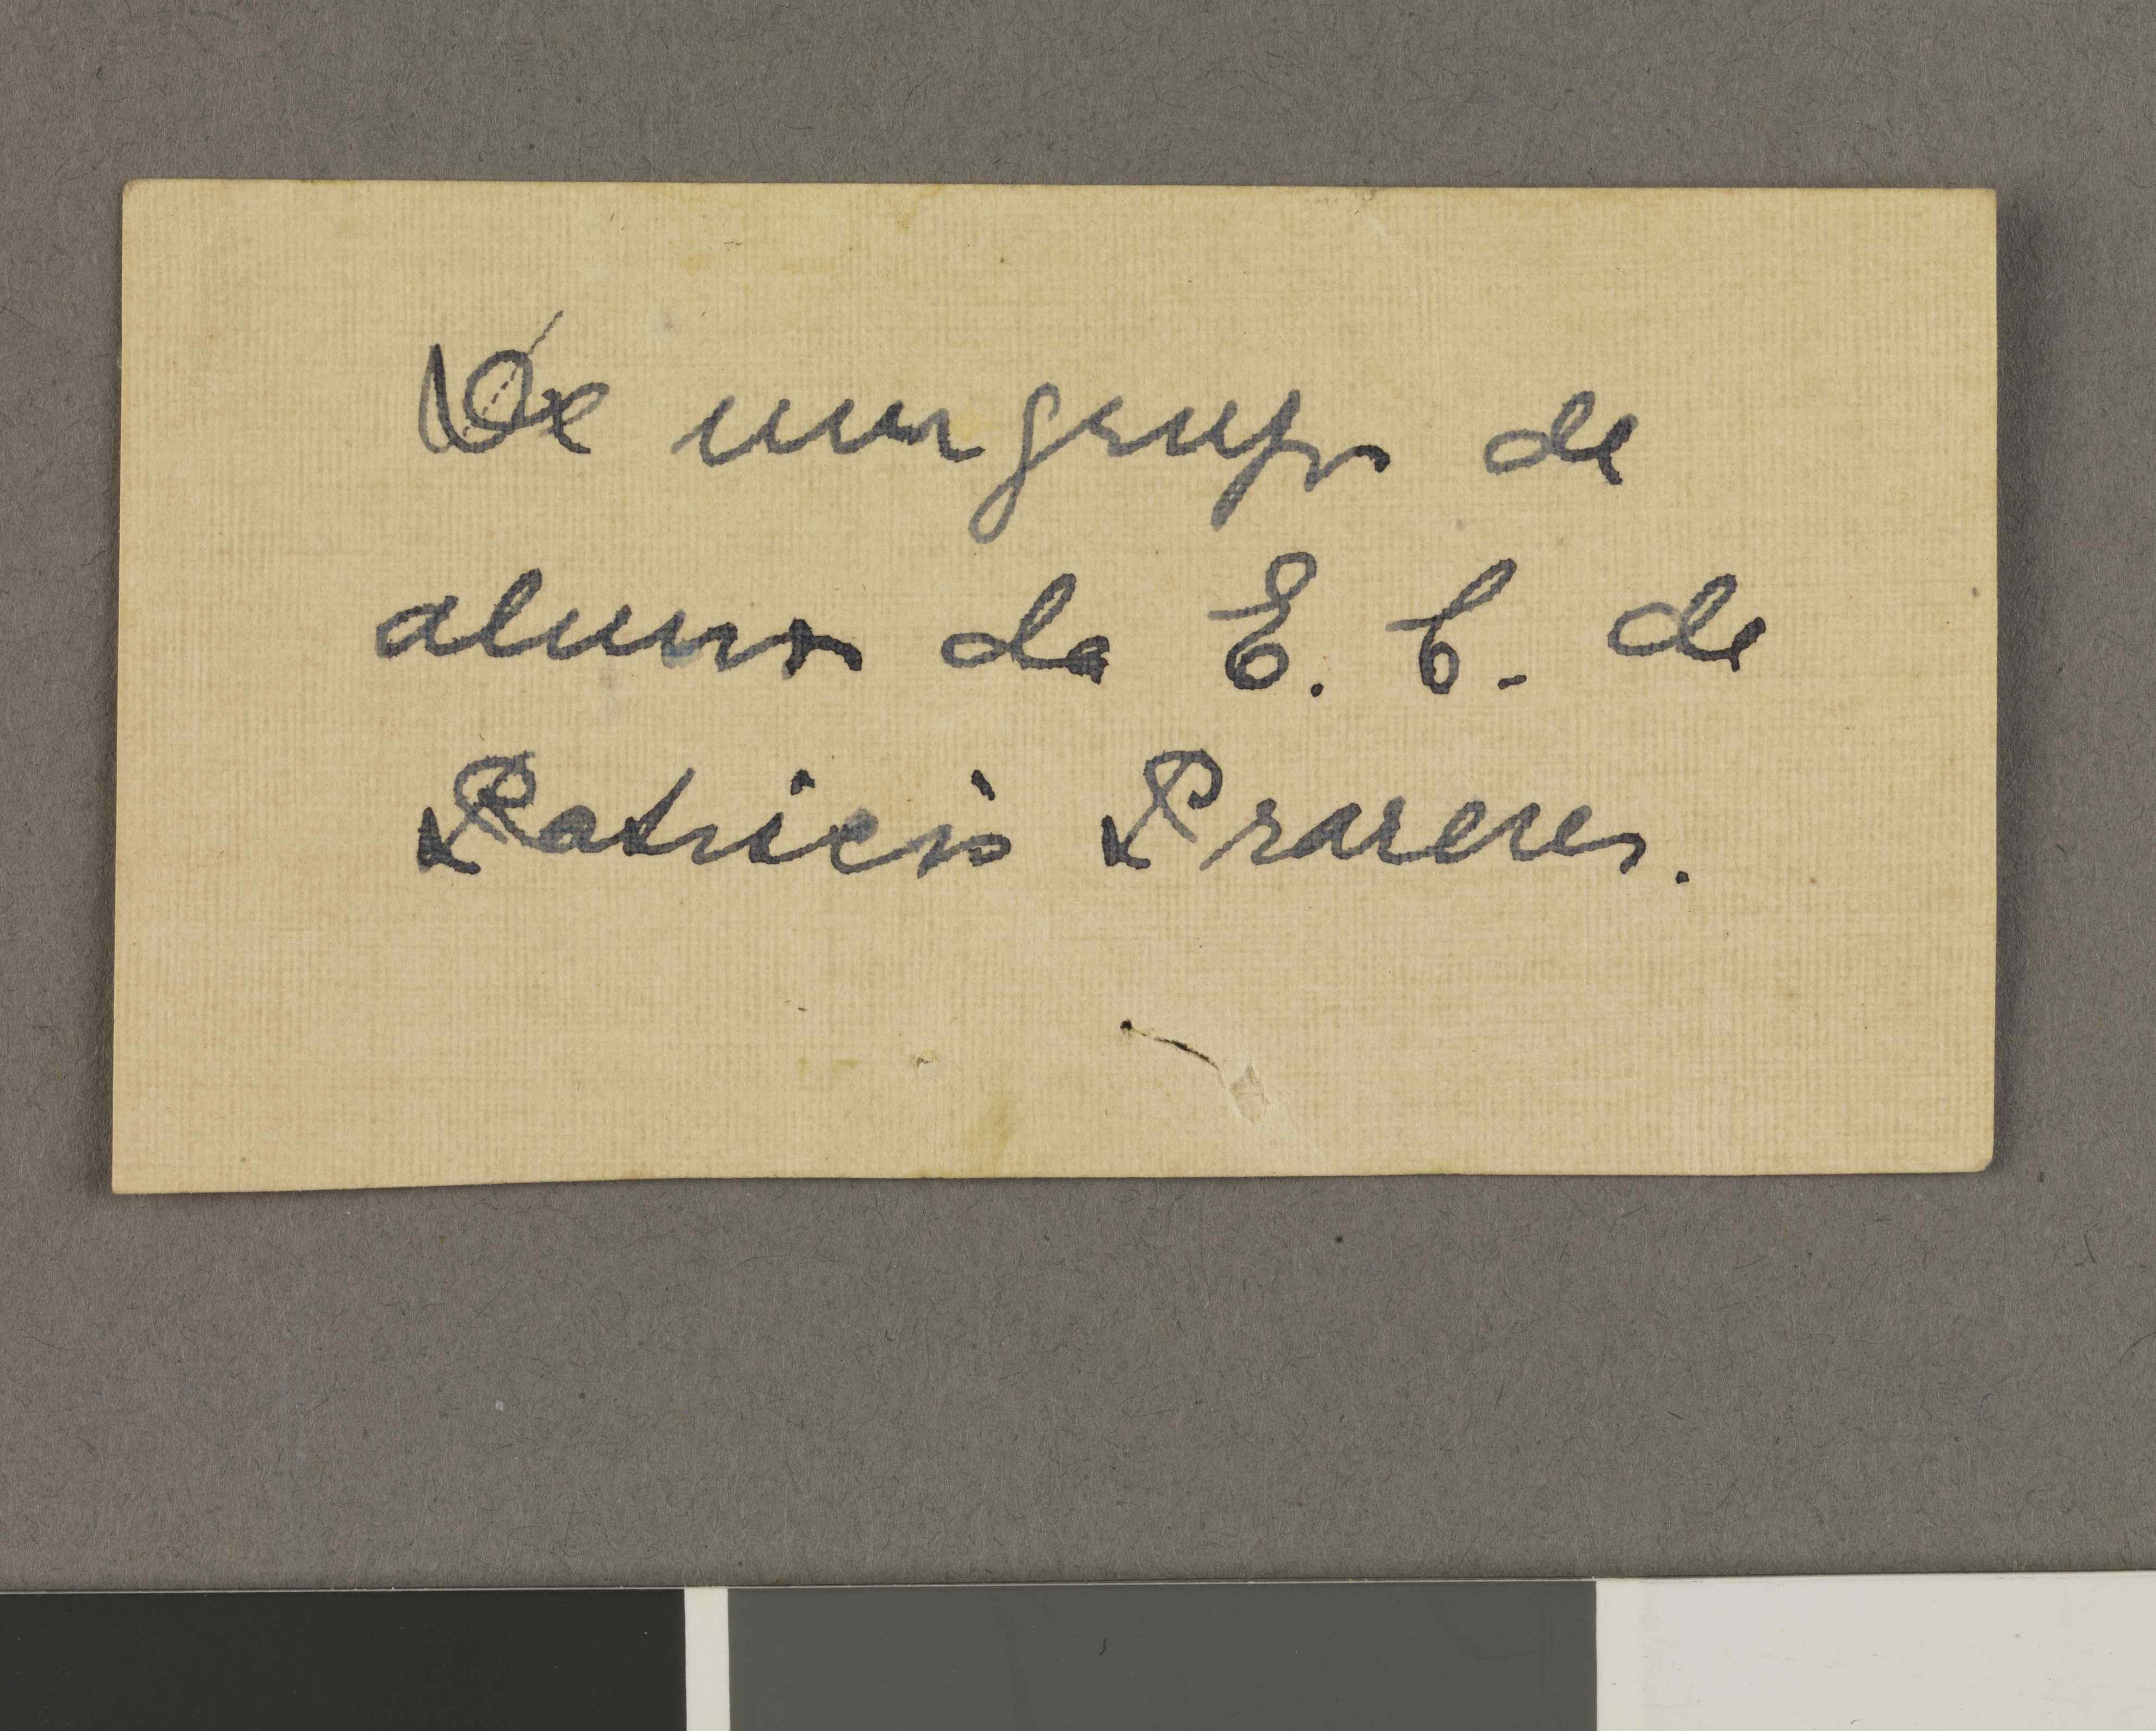 De um grupo de
alunos da E. C. de
Patricio Prazeres.